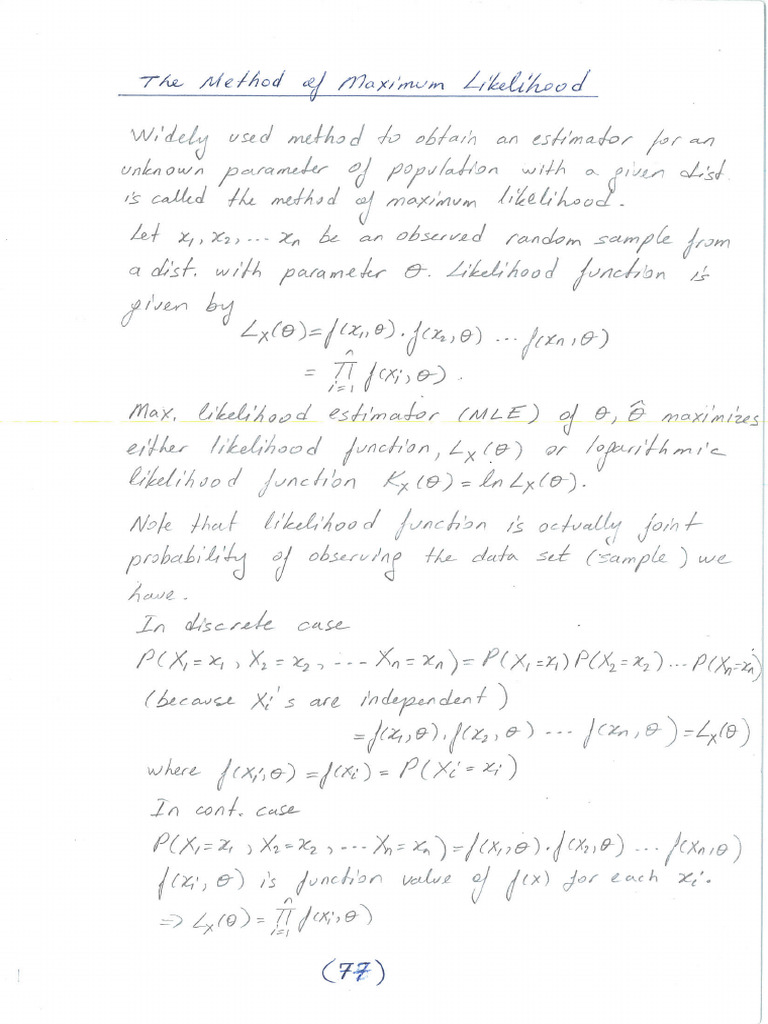 The Method of Maximum Likelihood
Widely used method to obtain an estimator for an
unknown parameter of population with a given dist.
is called the method of maximum likelihood.
Let x₁, x₂, ... xn be an observed random sample from
a dist. with parameter θ. Likelihood function is
given by
Lₓ(θ) = f(x₁,θ) · f(x₂,θ) ... f(xn,θ)
= ∏ⁿᵢ₌₁ f(xᵢ,θ).
Max. likelihood estimator (MLE) of θ, θ̂ maximizes
either likelihood function, Lₓ(θ) or logarithmic
likelihood function Kₓ(θ) = ln Lₓ(θ).
Note that likelihood function is actually joint
probability of observing the data set (sample) we
have.
In discrete case
P(X₁=x₁, X₂=x₂, --- Xn=xn) = P(X₁=x₁) P(X₂=x₂) ... P(Xn=xn)
(because Xi's are independent)
= f(x₁,θ) · f(x₂,θ) ... f(xn,θ) = Lₓ(θ)
where f(xi,θ) = f(xi) = P(Xi = xi)
In cont. case
P(X₁=x₁, X₂=x₂, --- Xn=xn) = f(x₁,θ) · f(x₂,θ) ... f(xn,θ)
f(xi,θ) is function value of f(x) for each xi.
⇒ Lₓ(θ) = ∏ⁿᵢ₌₁ f(xi,θ)
(77)